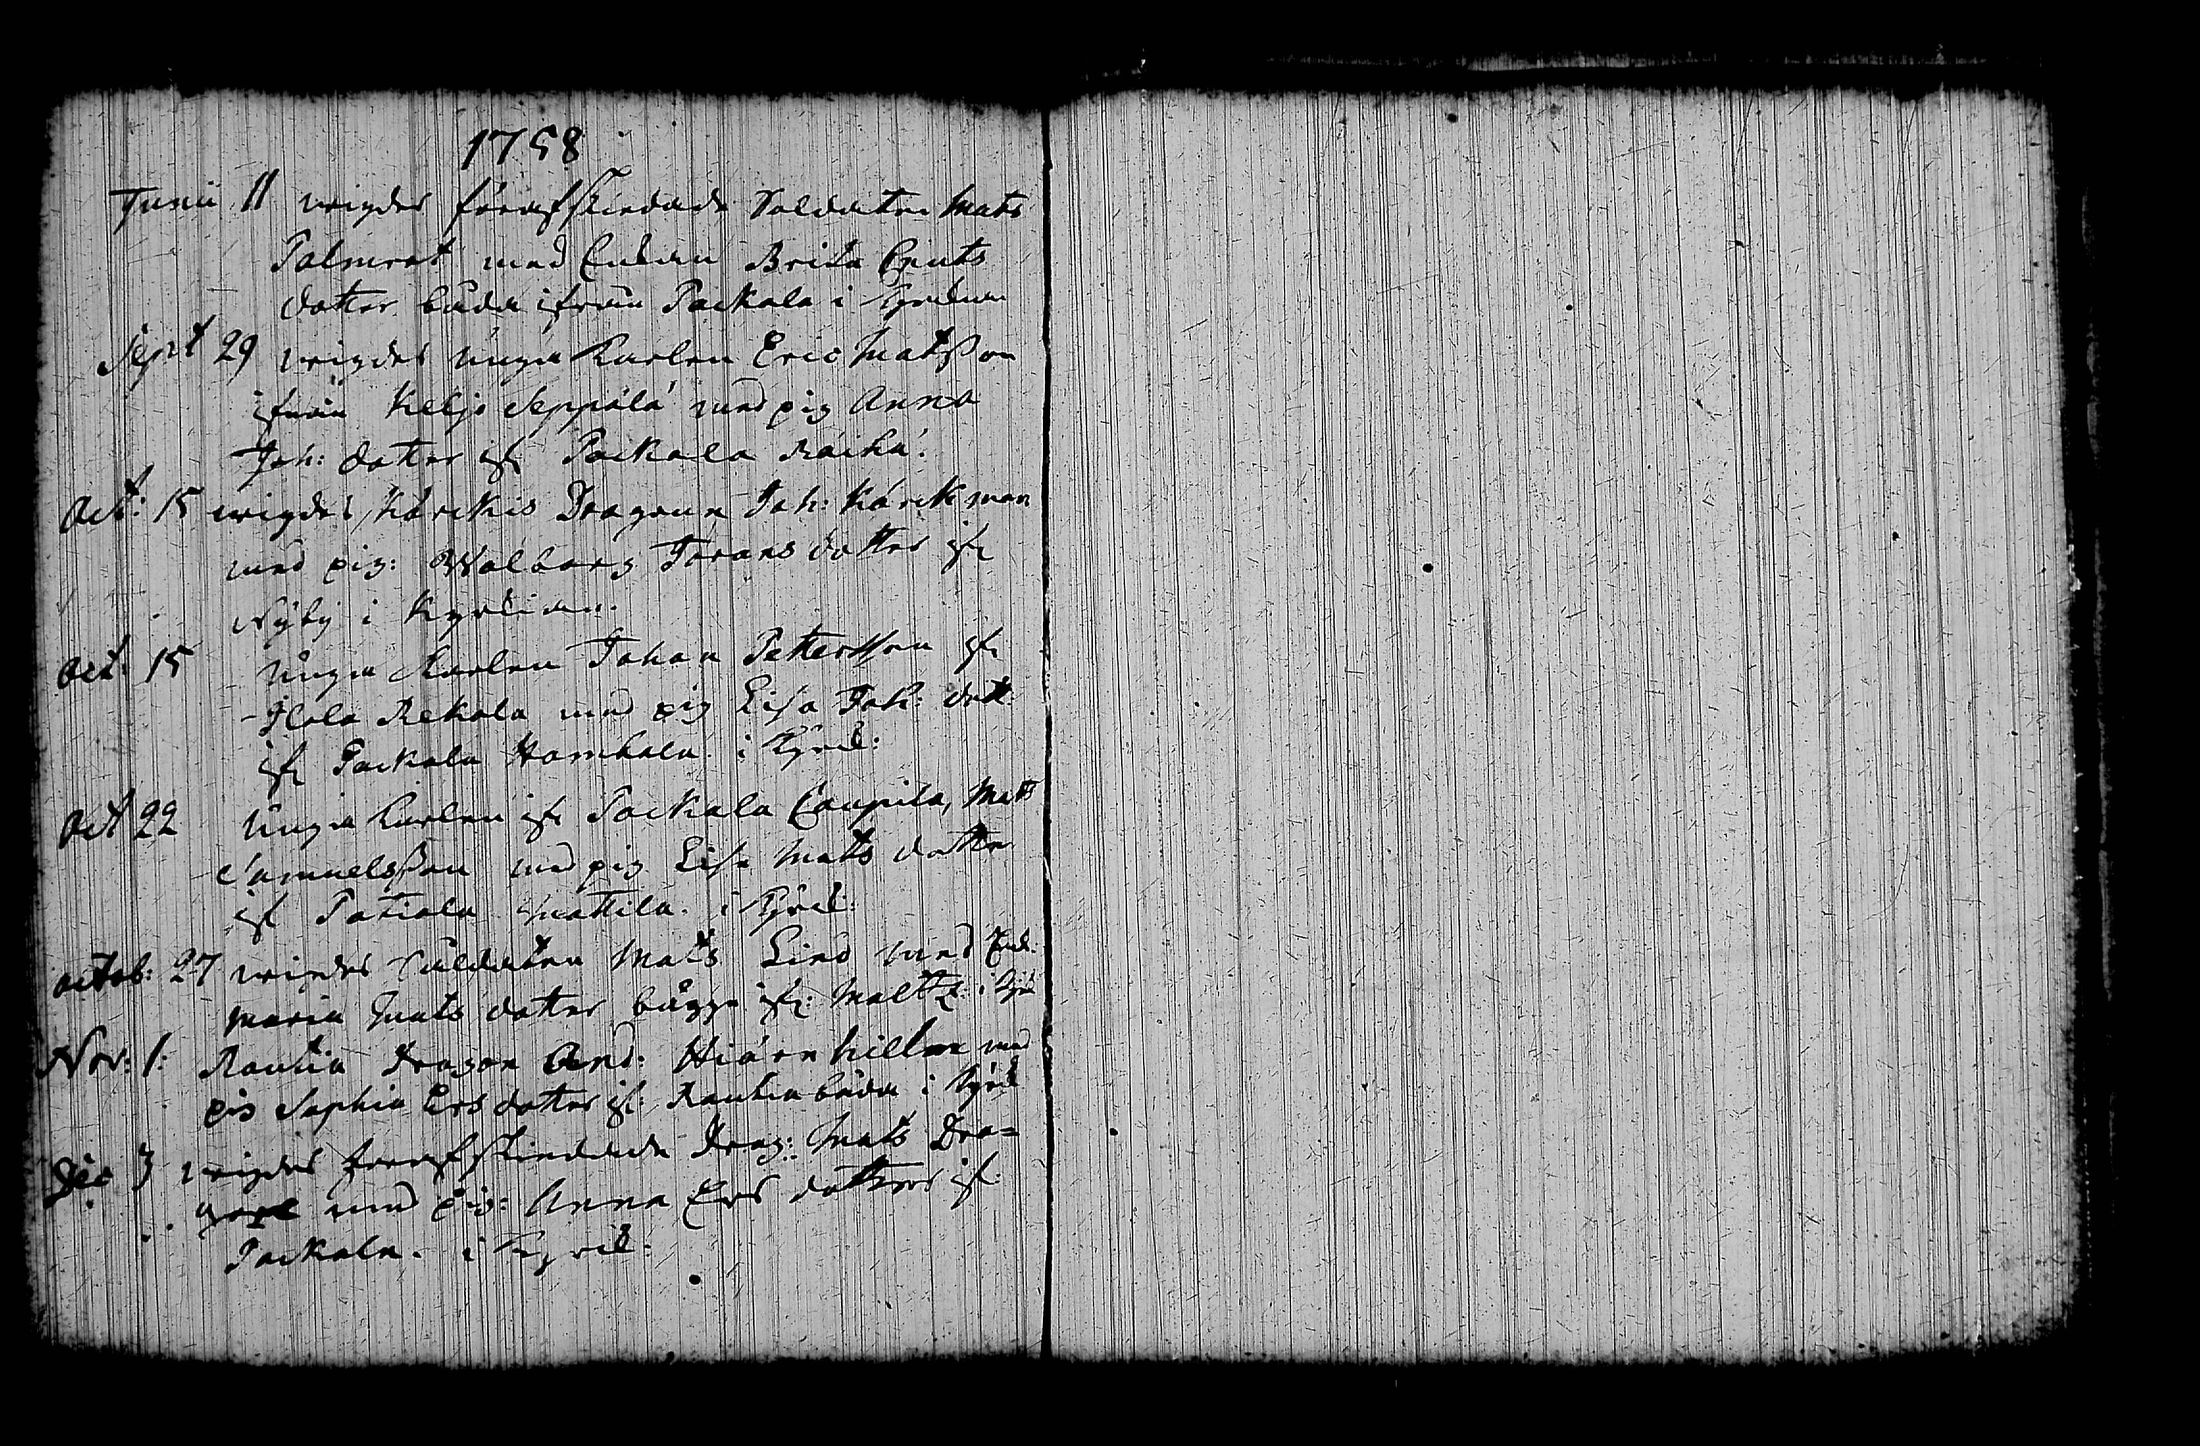 1758
Junii 11 wigdes förafskiedade Soldaten Mats
Palmrot med Enkan Brita Cnuts
dotter båda ifrån Packala i Kyrkian
Sept 29 wigdes unga Karlen Eric Matsson
ifrån Keljo Seppälä med pig Anna
Joh: dotter ifr Packala Räihä.
Oct: 15 wigdes, Kärckis Dragoun Joh: Kärckman
med pig: Walborg Jörans dotter ifr
Nÿbÿ i Kyrkian.
Oct: 15 unga Karlen Johan Pettersson ifr
Ilola Rekola med pig Lisa Joh: dott.
ifr Packala i Kyrk:
Oct 22 unga Karlen ifr Packala Caupila, Mats
Samuelsson med pig Lisa Mats dotter
ifr Mattila. i Kyrk:
Octob: 27 wigdes Soldaten Mats Lind med Enk:
Maria Cnuts dotter bägge ifr: i Kyrk
Nov: 1: Rautia Dragon And: med
pig Sophia Ers dotter ifr: Rautia båda i Kyrk
Dec 3 wigdes förafskiedade Drag: Mats Dra=
med pig: Anna Ers dotter ifr:
Packala. i Kyrk: